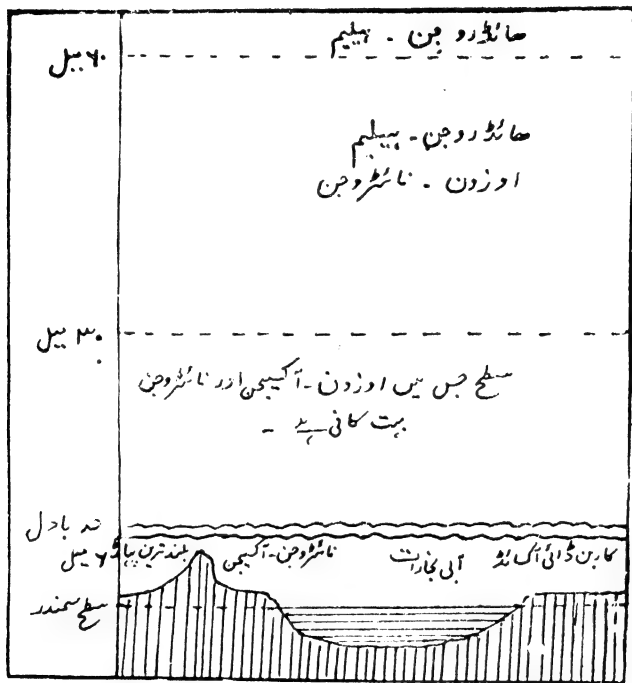 ھائڈروجن - ہیلیم
۶۰ میل
ھائڈروجن - ہیلیم
اوزون - نائٹروجن
۳۰ میل
سطح جس میں اوزون - آکسیجن اور نائٹروجن
بہت کافی ہے -
تہ بادل
۶ میل بلند ترین پہاڑ نائٹروجن - آکسیجن آبی بخارات کاربن ڈائی آکسائڈ
سطح سمندر